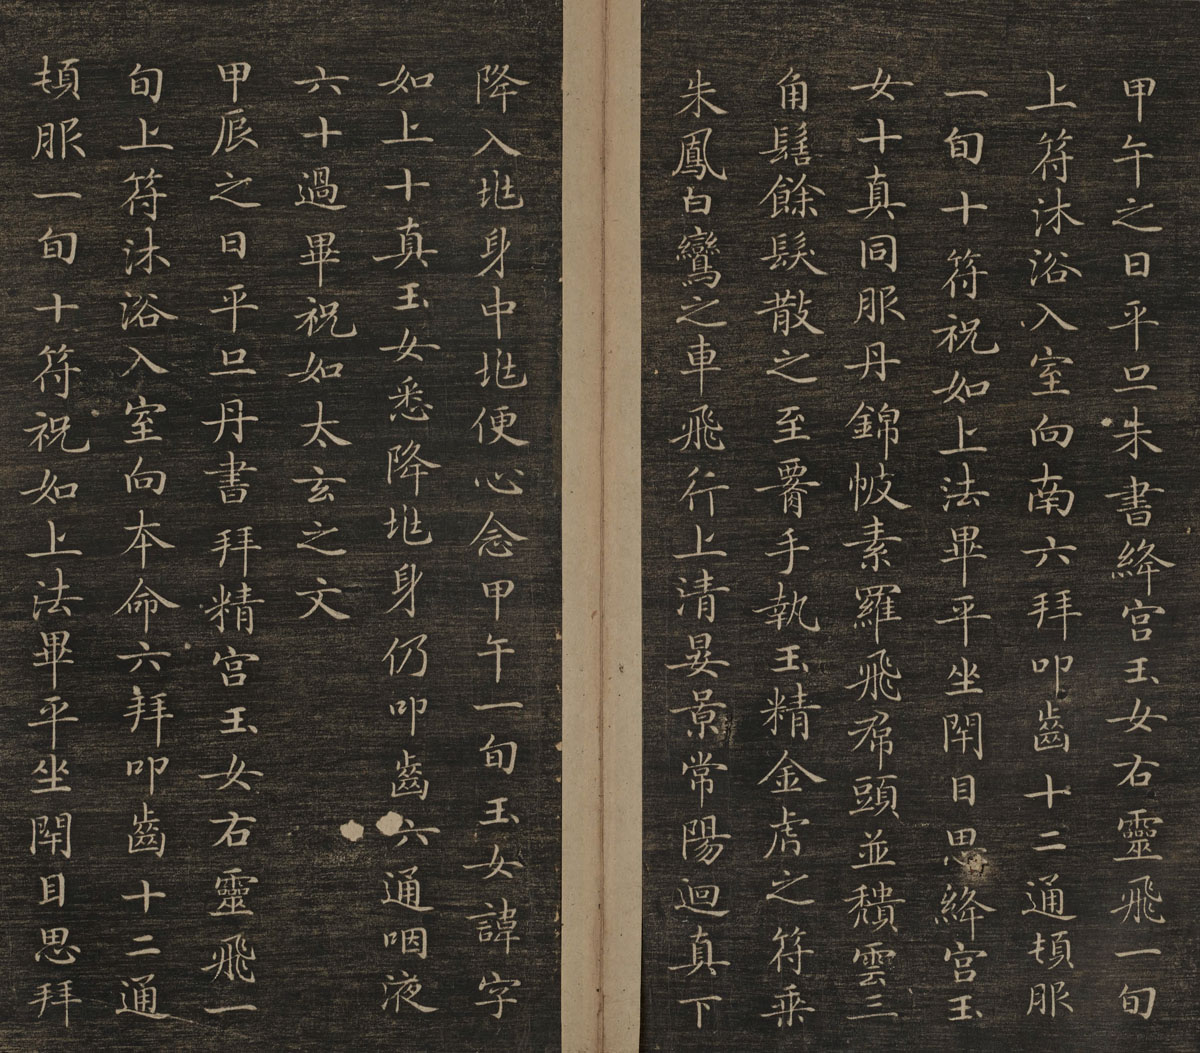 甲午之日平旦朱書絳宮玉女右靈飛一旬
上符沐浴入室向南六拜叩齒十二通頓服
一旬十符祝如上法畢平坐閇目思絳宮玉
女十真同服丹錦帔素羅飛帬頭並穨雲三
角髻餘髮散之至罯手執玉精金虎之符乘
朱鳳白鸞之車飛行上清晏景常陽迴真下
降入兆身中兆便心念甲午一旬玉女諱字
如上十真玉女悉降兆身仍叩齒六通咽液
六十過畢祝如太玄之文
甲辰之日平旦丹書拜精宮玉女右靈飛一
旬上符沐浴入室向本命六拜叩齒十二通
頓服一旬十符祝如上法畢平坐閇目思拜